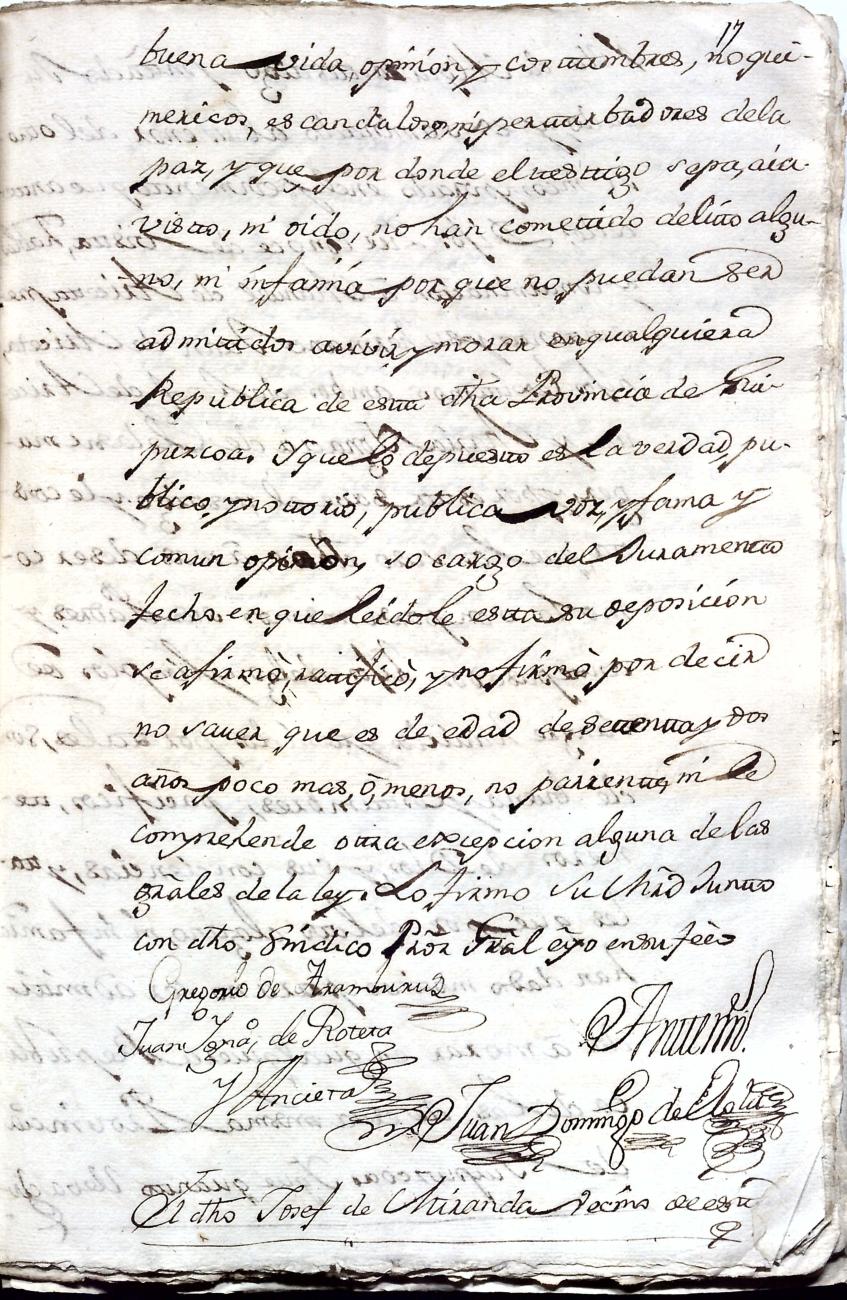 17
buena vida, opinión y costtumbres, no qui-
mericos, escandalosos, ni perturbadores dela
paz, y que por donde el testtigo sepa, aia
visto, ni oido, no han comettido delitto algu-
no, ni infamia por que no puedan ser
admitidos avivir, y morar enqualquiera
Republica de estta dha Provincia de Gui-
puzcoa. Y que lo depuestto es la verdad, pu-
blico, y nottorio, publica voz, y fama y
comun opinion, so cargo del Juramento
fecho, en que leidole estta su deposición
se afirmò, rattificò, y no firmò por decir
no saver que es de edad de settentta y dos
años poco mas, ò, menos, no parientte, ni le
comprehende ottra excepcion alguna de las
grãles de la ley. Lo firmo Su Mrd Juntto
con dho Sindico Prõr Grãl e yo en su feè=
Gregorio de Aramburu
Juan Ignaº de Roteta
Y Ancieta
Antemi
Juan Domingo de
El dho Josef de Miranda vecino de estta